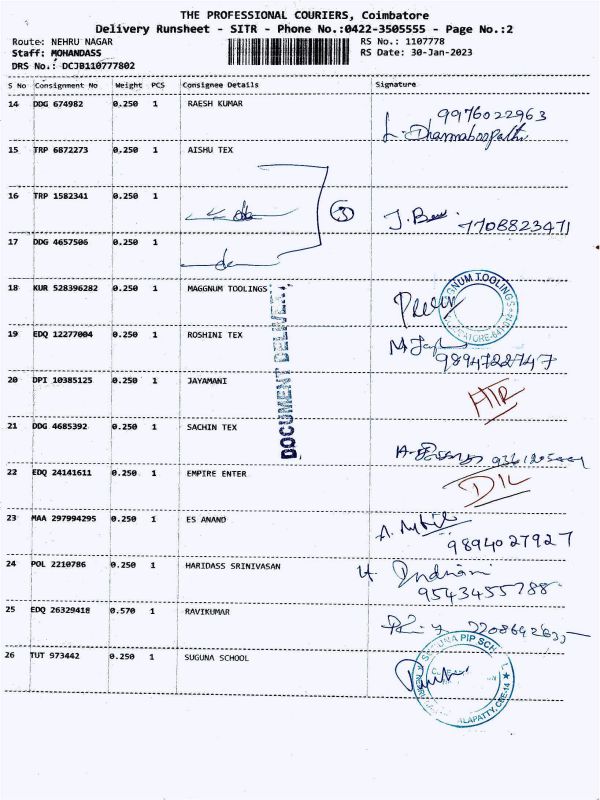 THE PROFESSIONAL COURIERS, Coimbatore
Delivery Runsheet - SITR - Phone No.:0422-3505555 - Page No.:2
Route: NEHRU NAGAR RS No.: 1107778
Staff: MOHANDASS RS Date: 30-Jan-2023
DRS No.: DCJB110777802
S No Consignment No Weight PCS Consignee Details Signature
14 DDG 674982 0.250 1 RAESH KUMAR 9976022963
15 TRP 6872273 0.250 1 AISHU TEX
16 TRP 1582341 0.250 1 7708823471
17 DDG 4657506 0.250 1
18 KUR 528396282 0.250 1 MAGGNUM TOOLINGS
19 EDQ 12277004 0.250 1 ROSHINI TEX 9894722747
20 DPI 10385125 0.250 1 JAYAMANI
21 DDG 4685392 0.250 1 SACHIN TEX
22 EDQ 24141611 0.250 1 EMPIRE ENTER D/L
23 MAA 297994295 0.250 1 ES ANAND 9894027927
24 POL 2210786 0.250 1 HARIDASS SRINIVASAN 9543455788
25 EDQ 26329418 0.570 1 RAVIKUMAR
26 TUT 973442 0.250 1 SUGUNA SCHOOL
DOCUMENT DELIVERY